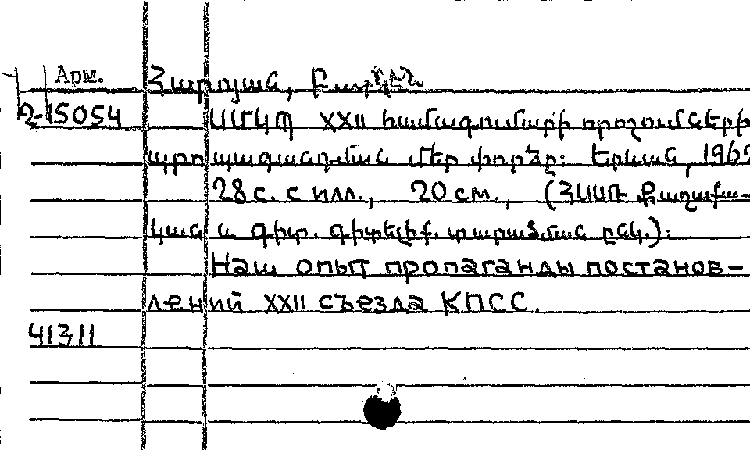 Арм.
Հարոյան,
2-15054
ՍՄԿՊ XXII համագումարի որոշումների
պրոպագանդման մեր փորձը: Երևան, 196
28 с. с илл., 20 см., (ՀՍՍՌ Քաղաքա-
կան և գիտ. գիտելիք. տարածման ընկ.):
Наш опыт пропаганды постанов-
лений XXII съезда КПСС.
41311